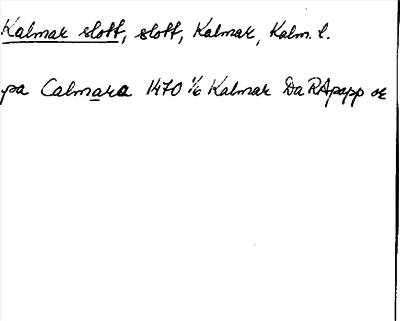 Kalmar slott, slott, Kalmar, Kalm. l.
pa Calmara 1470 1/6 Kalmar Da RApapp or